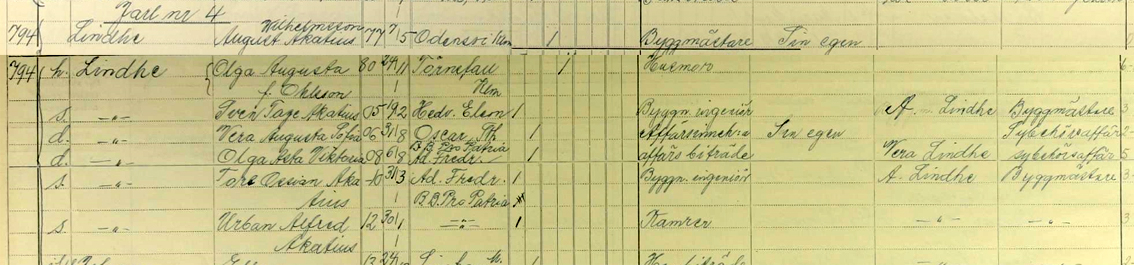 Jarl nr 4
Wilhelmsson
794 Lindhe August Akatius 77 7/5 Odensvi Klm 1 Byggmästare Sin egen
794 h. Lindhe Olga Augusta 80 24/11 Törnefall 1 Husmoro
f. Ohlsson Klm
s. -"- Sven Tage Akatius 05 19/2 Hedv. Eleon 1 Byggn. ingeniör A. Lindhe Byggmästare 3
d. -"- Vera Augusta Sofia 06 31/8 Oscar Sth 1 Affärsinneh:a Sin egen Sybehörsaffär 2
B.B. Pro Patria
d. -"- Olga Asta Viktoria 08 6/8 Ad. Fredr. 1 affärsbiträde Vera Lindhe sybehörsaffär 5
s. -"- Tore Ossian Aka 10 31/3 Ad. Fredr. 1 Byggn. ingeniör A. Lindhe Byggmästare 3
tius B.B. Pro Patria
s. -"- Urban Alfred 12 30/1 -"- 1 Kamrer -"- -"- 3
Akatius